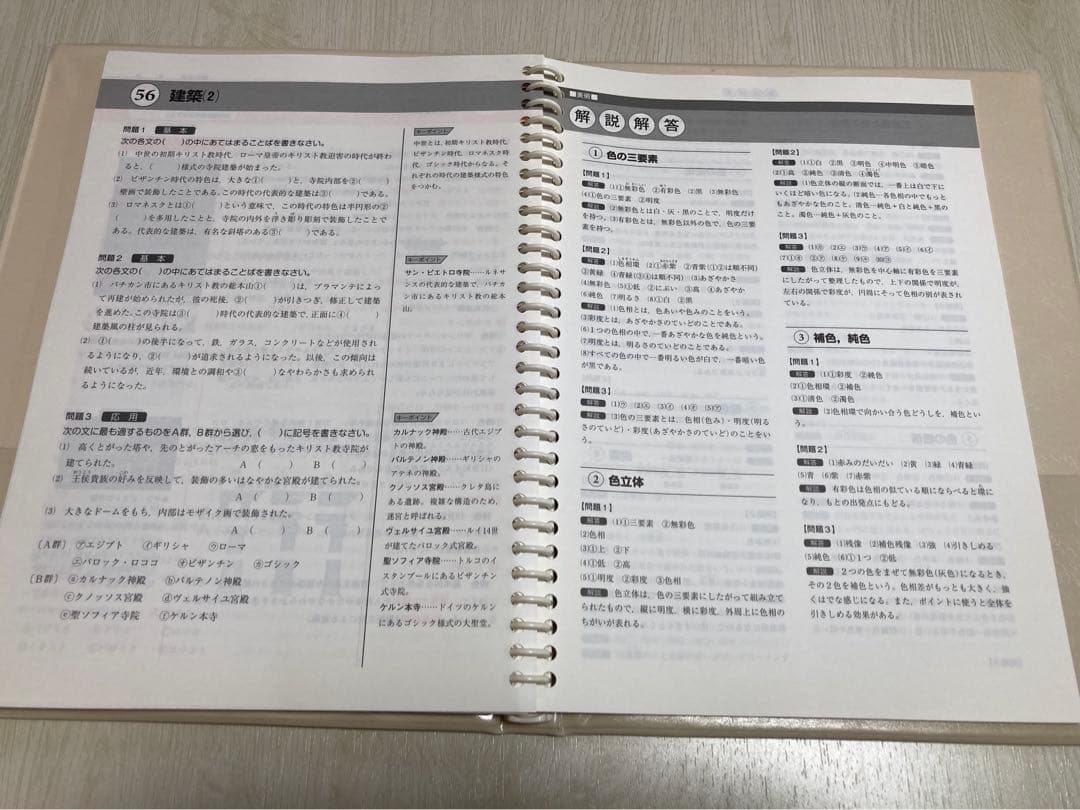 56 建築(2)
問題1 基本
次の各文の(　)の中にあてはまることばを書きなさい。
(1) 中世の初期キリスト教時代，ローマ皇帝のキリスト教迫害の時代が終わ
ると，(　)様式の寺院建築が始まった。
(2) ビザンチン時代の特色は，大きな①(　)と，寺院内部を②(　)
壁画で装飾したことである。この時代の代表的な建築は③(　)である。
(3) ロマネスクとは①(　)という意味で，この時代の特色は半円形の②
(　)を多用したことと，寺院の内外を浮き彫り彫刻で装飾したことで
ある。代表的な建築は，有名な斜塔のある③(　)である。
キーポイント
中世とは，初期キリスト教時代，
ビザンチン時代，ロマネスク時
代，ゴシック時代からなる。そ
れぞれの時代の建築様式の特色
をつかむ。
問題2 基本
次の各文の(　)の中にあてはまることばを書きなさい。
(1) バチカン市にあるキリスト教の総本山①(　)は，ブラマンテによっ
て再建が始められたが，彼の死後，②(　)が引きつぎ，修正して建築
を進めた。この寺院は③(　)時代の代表的な建築で，正面に④(　)
建築風の柱が見られる。
(2) ①(　)の後半になって，鉄，ガラス，コンクリートなどが使用され
るようになり，②(　)が追求されるようになった。以後，この傾向は
続いているが，近年，環境との調和や③(　)なやわらかさも求められ
るようになった。
キーポイント
サン・ピエトロ寺院……ルネサ
ンスの代表的な建築で，バチカ
ン市にあるキリスト教の総本
山。
問題3 応用
次の文に最も適するものをA群，B群から選び，(　)に記号を書きなさい。
(1) 高くとがった塔や，先のとがったアーチの窓をもったキリスト教寺院が
建てられた。 A (　) B (　)
(2) 王侯貴族の好みを反映して，装飾の多いはなやかな宮殿が建てられた。
A (　) B (　)
(3) 大きなドームをもち，内部はモザイク画で装飾された。
A (　) B (　)
〔A群〕 ㋐エジプト ㋑ギリシャ ㋒ローマ
㋓バロック・ロココ ㋔ビザンチン ㋕ゴシック
〔B群〕 ⓐカルナック神殿 ⓑパルテノン神殿
ⓒクノッソス宮殿 ⓓヴェルサイユ宮殿
ⓔ聖ソフィア寺院 ⓕケルン本寺
キーポイント
カルナック神殿……古代エジプ
トの神殿。
パルテノン神殿……ギリシャの
アテネの神殿。
クノッソス宮殿……クレタ島に
ある遺跡。複雑な構造のため，
迷宮と呼ばれる。
ヴェルサイユ宮殿……ルイ14世
が建てたバロック式宮殿。
聖ソフィア寺院……トルコのイ
スタンブールにあるビザンチン
式寺院。
ケルン本寺……ドイツのケルン
にあるゴシック様式の大聖堂。
■美術■
解説解答
① 色の三要素
【問題1】
解答 (1)①無彩色 ②有彩色 ③黒 (3)無彩色
(4)①色の三要素 ②明度
解説 (2)無彩色とは白・灰・黒のことで，明度だけ
を持つ。(3)有彩色とは，無彩色以外の色で，色の三要
素を持つ。
【問題2】
解答 (1)色相環 (2)①赤紫 ②青紫(①②は順不同)
③黄緑 ④青緑(③④は順不同) (3)あざやかさ
(4)無彩色 (5)①低 ②にぶい ③高 ④あざやか
(6)純色 (7)明るさ (8)①白 ②黒
解説 (1)色相とは，色あいや色みのことをいう。
(3)彩度とは，あざやかさのていどのことである。
(6)1つの色相の中で，一番あざやかな色を純色という。
(7)明度とは，明るさのていどのことである。
(8)すべての色の中で一番明るい色が白で，一番暗い色
が黒である。
【問題3】
解答 (1)㋒ (2)㋓ (3)㋑ (4)㋔ (5)㋐
解説 (3)色の三要素とは，色相(色み)・明度(明る
さのていど)・彩度(あざやかさのていど)のことをい
う。
② 色立体
【問題1】
解答 (1)①三要素 ②無彩色
(2)色相
(3)①上 ②下
(4)①低 ②高
(5)①明度 ②彩度 ③色相
解説 色立体は，色の三要素にしたがって組み立て
られたもので，縦に明度，横に彩度，外周上に色相の
ちがいが表れる。
【問題2】
解答 (1)①白 ②黒 ③明色 ④中明色 ⑤暗色
(2)①高 ②純色 ③清色 ④濁色
解説 (1)色立体の縦の断面では，一番上は白で下に
いくほど暗い色になる。(2)純色…各色相の中でもっと
もあざやかな色のこと。清色…純色+白と純色+黒の
こと。濁色…純色+灰色のこと。
【問題3】
解説 色立体は，無彩色を中心軸に有彩色を三要素
にしたがって整理したもので，上下の関係で明度が，
左右の関係で彩度が，円周にそって色相の別が表され
ている。
③ 補色，純色
【問題1】
解答 (1)①彩度 ②純色
(2)①色相環 ②補色
(3)①清色 ②濁色
解説 (2)色相環で向かい合う色どうしを，補色とい
う。
【問題2】
解答 (1)赤みのだいだい (2)黄 (3)緑 (4)青緑
(5)青 (6)紫 (7)赤紫
解説 有彩色は色相の似ている順にならべると環に
なり，もとの出発点にもどる。
【問題3】
解答 (1)残像 (2)補色残像 (3)強 (4)引きしめる
(5)純色 (6)①1つ ②低
解説 2つの色をまぜて無彩色(灰色)になるとき，
その2色を補色という。色相差がもっとも大きく，強
くはでな感じになる。また，ポイントに使うと全体を
引きしめる効果がある。